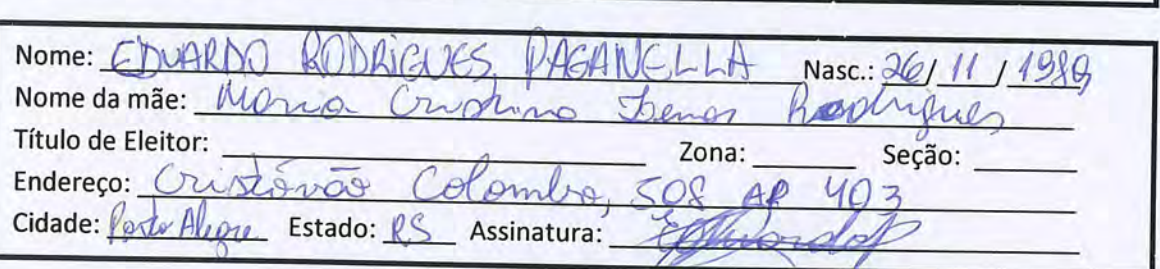 Nome: EDUARDO RODRIGUES PAGANELLA Nasc.: 26/11/1989
Nome da mãe: Maria Cristina Rodrigues
Título de Eleitor: Zona: Seção:
Endereço: Cristóvão Colombo, 508 AP 403
Cidade: Porto Alegre Estado: RS Assinatura: